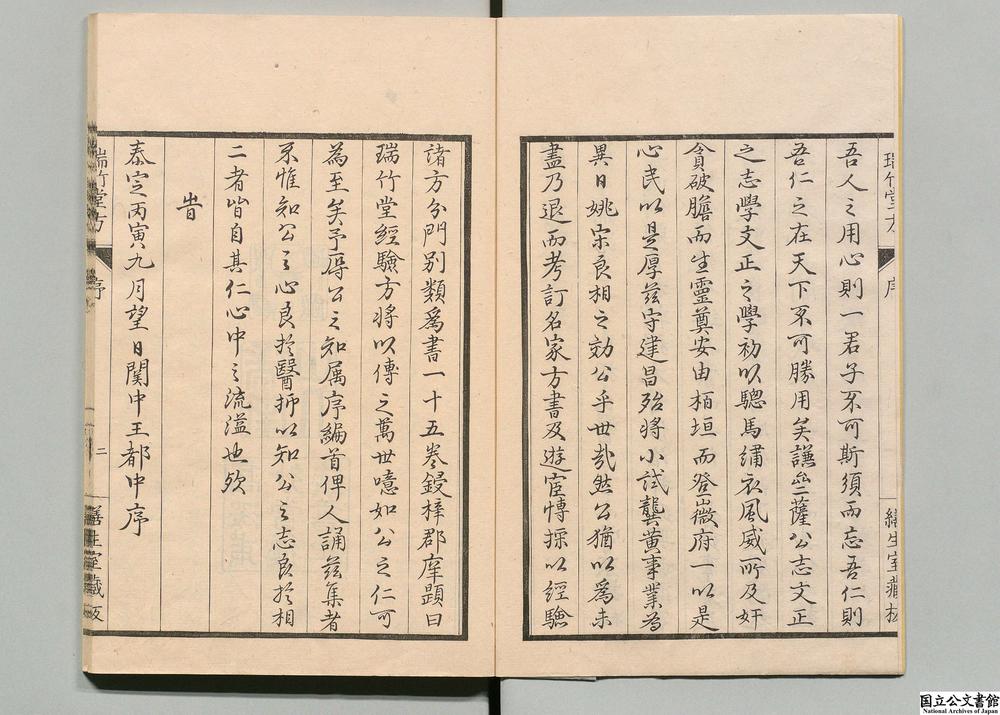 瑞竹堂方
序
吾人之用心則一君子不可斯須而忘吾仁則
吾仁之在天下不可勝用矣謙齋薩公志文正
之志學文正之學初以驄馬繡衣風威所及奸
貪破膽而生靈奠安由栢垣而登薇府一以是
心民以是厚茲守建昌殆將小試龔黃事業為
異日姚宋良相之効公乎世哉然公猶以為未
盡乃退而考訂名家方書及遊宦博採以經驗
繕生室藏板
諸方分門別類爲書一十五卷鋟梓郡庠題曰
瑞竹堂經驗方將以傳之萬世噫如公之仁可
為至矣予辱公之知属序編首俾人誦茲集者
不惟知公之心良於醫抑以知公之志良於相
二者皆自其仁心中之流溢也欤
旹
泰定丙寅九月望日関中王都中序
瑞竹堂方
序
二
繕生室藏板
国立公文書館
National Archives of Japan